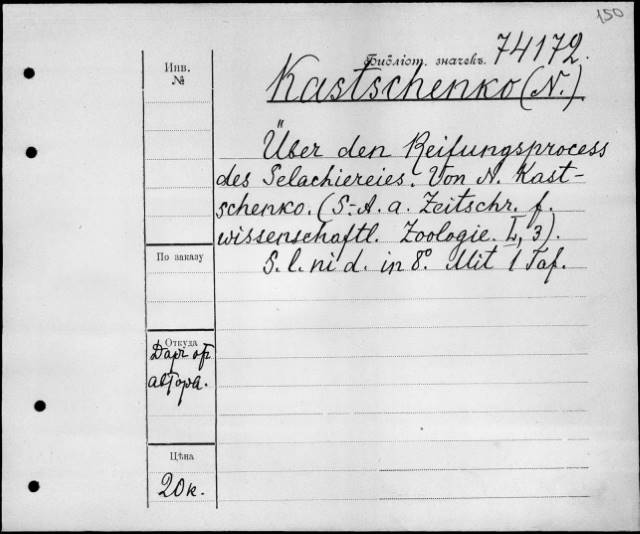 150
Библіот. значекъ. 74172.
Инв.
№
Kastschenko (N.)
Über den Reifungsprocess
des Selachiereies. Von N. Kast-
schenko. (S.-A. a. Zeitschr. f.
wissenschaftl. Zoologie. L, 3).
S. l. ni d. in 8°. Mit 1 Taf.
По заказу
Откуда
Даръ от
автора.
Цѣна
20 к.